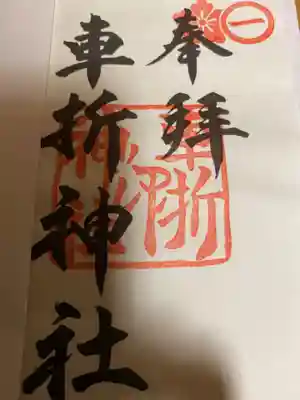 一
奉拝
車折神社
車折神社